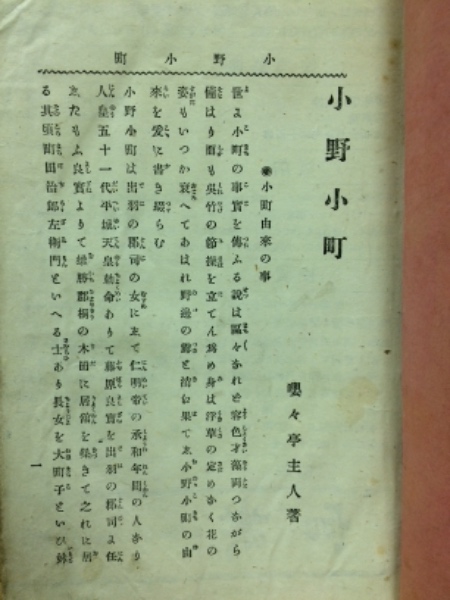 小野小町
小野小町
嚶々亭主人著
●小町由來の事
世よ小町の事實を傳ふる説は區々なれど容色才藻両つながら
備はり而も呉竹の節操を立てん爲め身は浮草の定めなく花の
姿もいつか衰へてあはれ野邊の露と消に果てゑ小野小町の由
來を爰に書き綴らむ
小野小町は出羽の郡司の女にゑて仁明帝の承和年間の人なり
人皇五十一代平城天皇勅命ありて藤原良實を出羽の郡司よ任
ゑたもふ良實よりて雄勝郡桐の木田に居舘を築きて之れに居
る其頃町田治郎左衛門といへる士あり長女を大町子といひ妹
一